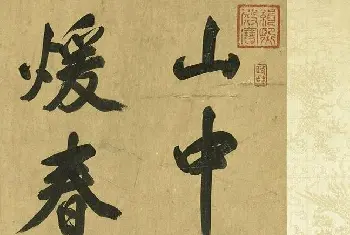 山中
煖春